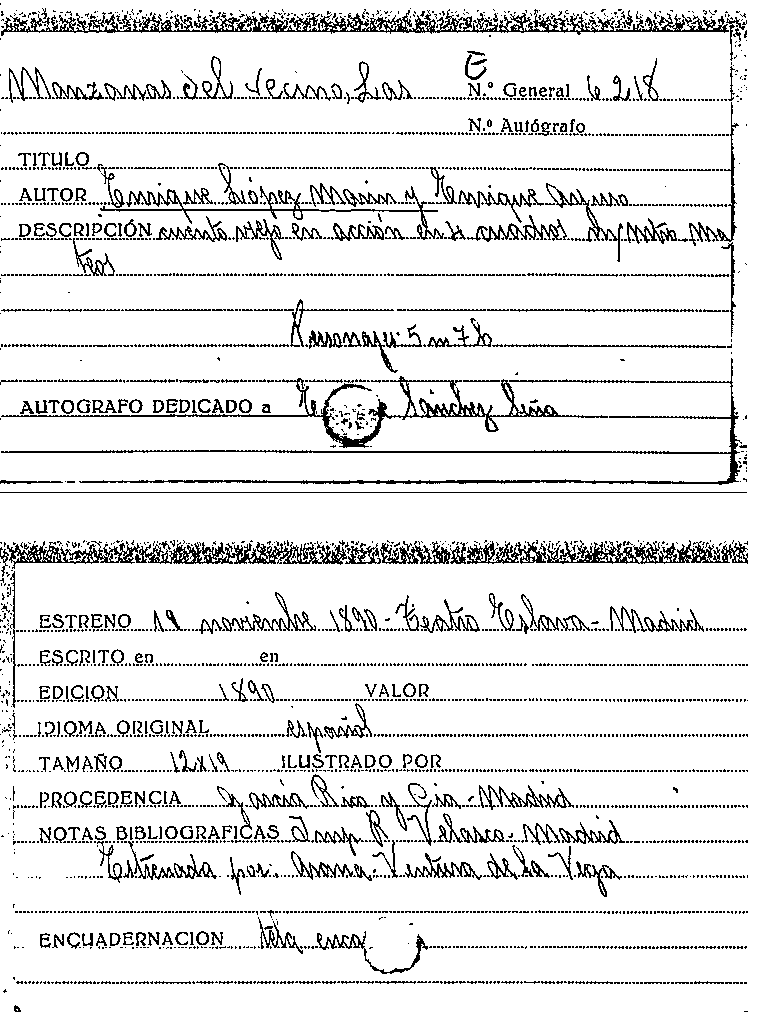 E
Manzanas del vecino, Las Nº General 6218
Nº Autógrafo
TITULO
AUTOR Enrique López Marin y Enrique Ayuso
DESCRIPCIÓN cuento viejo en acción en 4 cuadros m/ Mtro Ma
teos
Personajes 5 m 7 h
AUTOGRAFO DEDICADO a Sánchez Seña
ESTRENO 19 noviembre 1890 - Teatro Eslava - Madrid
ESCRITO en en
EDICION 1890 VALOR
IDIOMA ORIGINAL español
TAMAÑO 12x19 ILUSTRADO POR
PROCEDENCIA García Rico y Cia - Madrid
NOTAS BIBLIOGRAFICAS Imp R Velasco - Madrid
Estrenada por: Arana - Ventura de la Vega
ENCUADERNACION tela